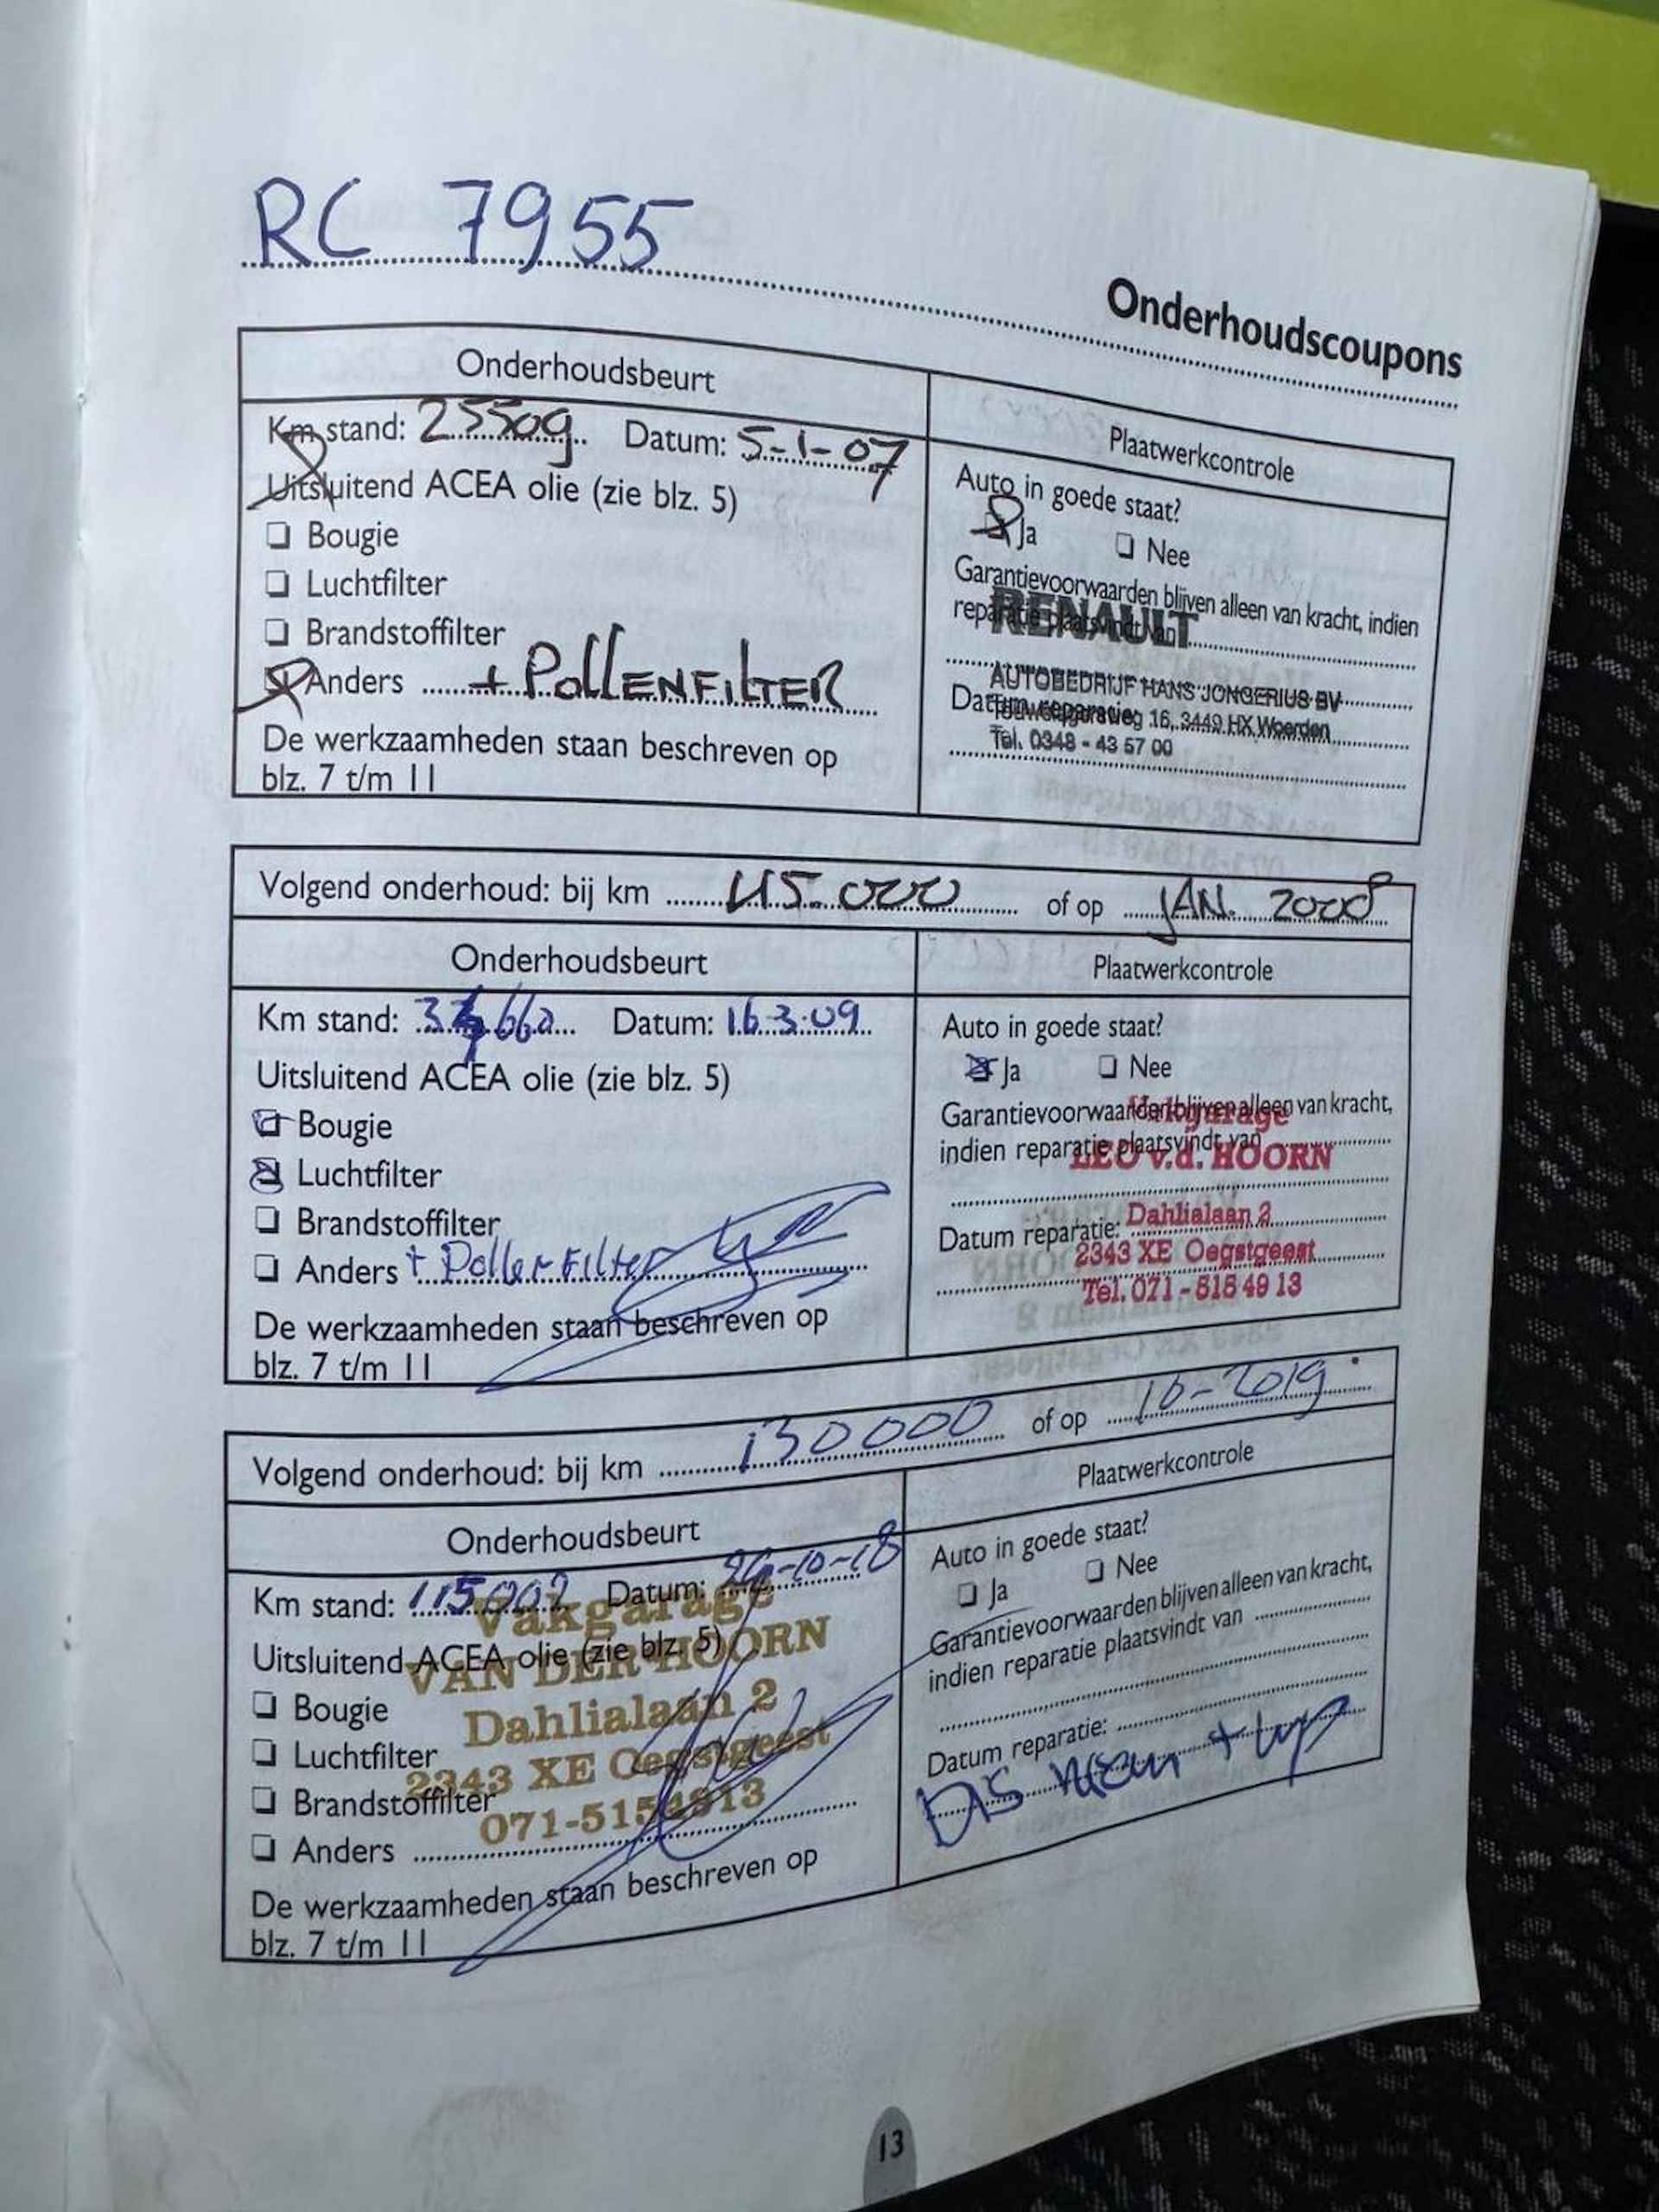 RC 7955
Onderhoudscoupons
Onderhoudsbeurt
Km stand: 25509 Datum: 5-1-07
Uitsluitend ACEA olie (zie blz. 5)
Bougie
Luchtfilter
Brandstoffilter
Anders + POLLENFILTER
De werkzaamheden staan beschreven op
blz. 7 t/m 11
Plaatwerkcontrole
Auto in goede staat?
Ja Nee
Garantievoorwaarden blijven alleen van kracht, indien
reparatie plaatsvindt van
RENAULT
AUTOBEDRIJF HANS JONGERIUS BV
Datum reparatie:
16, 3449 HX Woerden
Tel. 0348 - 43 57 00
Volgend onderhoud: bij km 45.000 of op JAN. 2008
Onderhoudsbeurt
Km stand: Datum: 16.3.09
Uitsluitend ACEA olie (zie blz. 5)
Bougie
Luchtfilter
Brandstoffilter
Anders + Pollenfilter
De werkzaamheden staan beschreven op
blz. 7 t/m 11
Plaatwerkcontrole
Auto in goede staat?
Ja Nee
Garantievoorwaarden blijven alleen van kracht,
indien reparatie plaatsvindt van
Vakgarage
LEO v.d. HOORN
Datum reparatie:
Dahlialaan 2
2343 XE Oegstgeest
Tel. 071 - 515 49 13
Volgend onderhoud: bij km 130000 of op 10-2019
Onderhoudsbeurt
Km stand: 115002 Datum: 24-10-18
Uitsluitend ACEA olie (zie blz. 5)
Bougie
Luchtfilter
Brandstoffilter
Anders
De werkzaamheden staan beschreven op
blz. 7 t/m 11
Vakgarage
VAN DER HOORN
Dahlialaan 2
2343 XE Oegstgeest
071-5154913
Plaatwerkcontrole
Auto in goede staat?
Ja Nee
Garantievoorwaarden blijven alleen van kracht,
indien reparatie plaatsvindt van
Datum reparatie:
DIS riem + wp
13